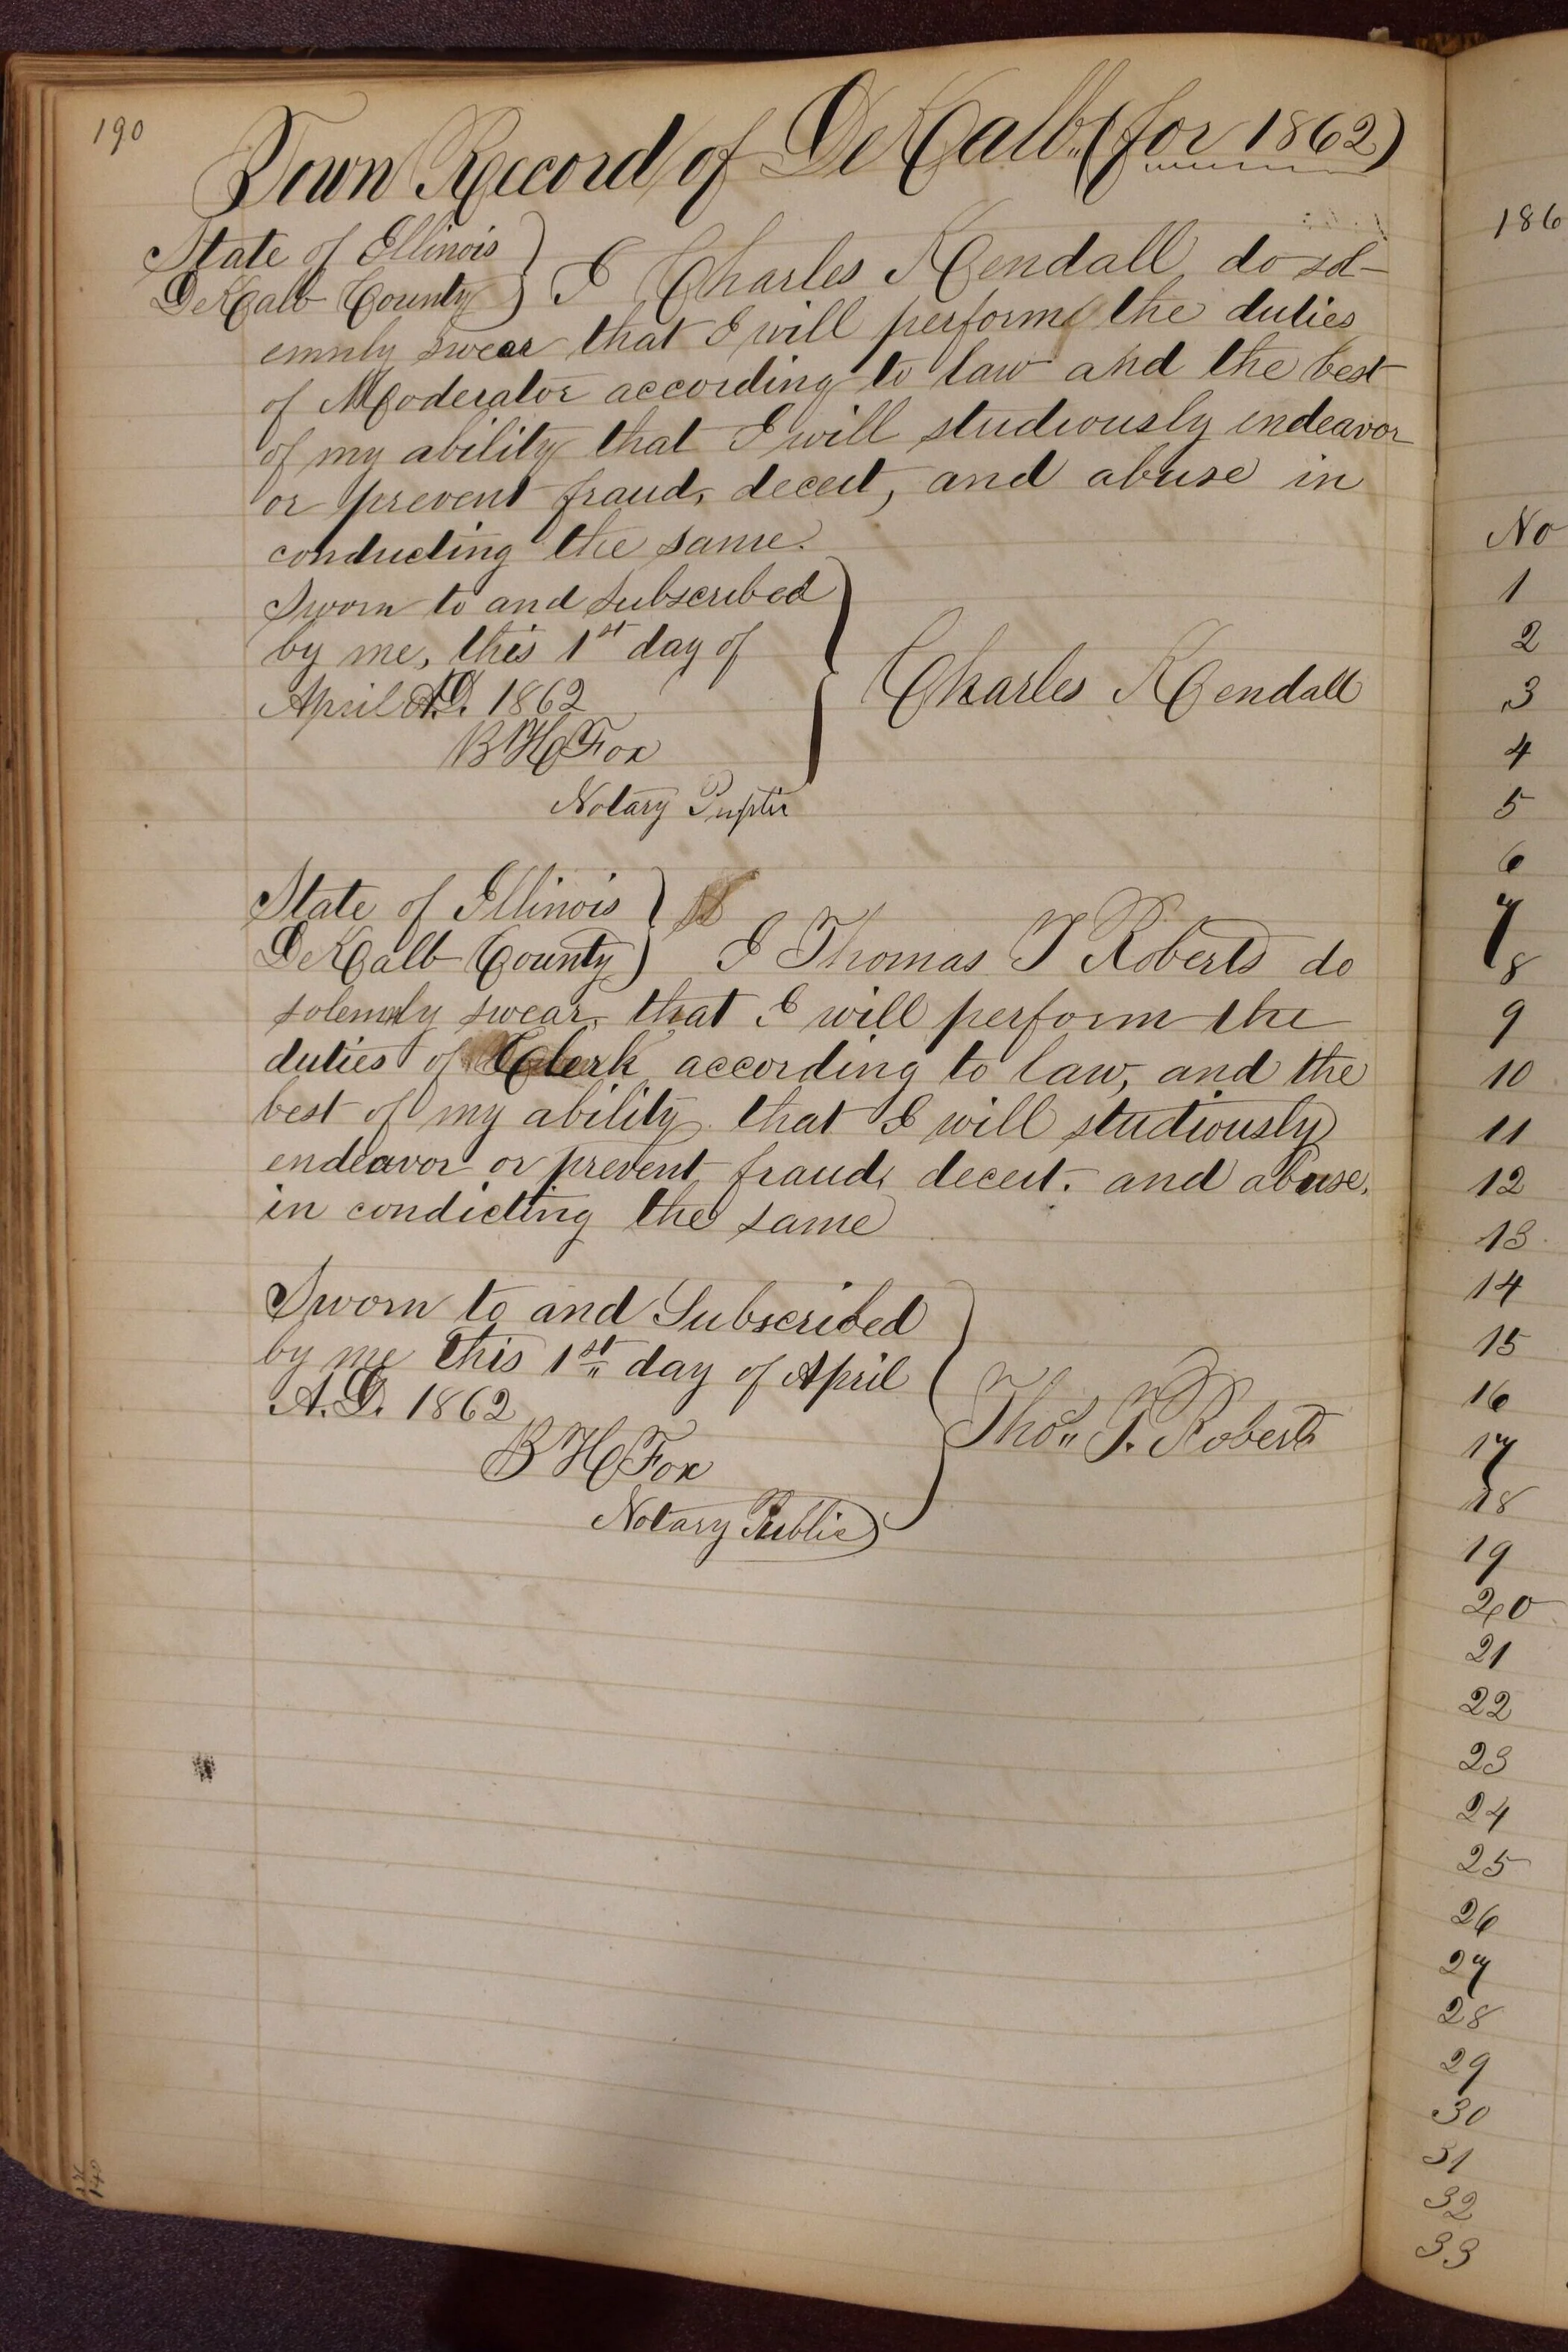 190
Town Record of DeKalb (for 1862)
State of Illinois
DeKalb County } I Charles Kendall do sol-
emnly swear that I will perform the duties
of Moderator according to law and the best
of my ability that I will studiously endeavor
or prevent fraud, deceit, and abuse in
conducting the same.
Sworn to and subscribed
by me, this 1st day of
April A.D. 1862
Charles Kendall
B H Fox
Notary
State of Illinois
DeKalb County } I Thomas T Roberts do
solemnly swear, that I will perform the
duties of Clerk according to law, and the
best of my ability that I will studiously
endeavor or prevent fraud, deceit. and abuse,
in condicting the same
Sworn to and Subscribed
by me this 1st day of April
A.D. 1862
Thos T. Roberts
B H Fox
Notary Public
186
No
1
2
3
4
5
6
7
8
9
10
11
12
13
14
15
16
17
18
19
20
21
22
23
24
25
26
27
28
29
30
31
32
33